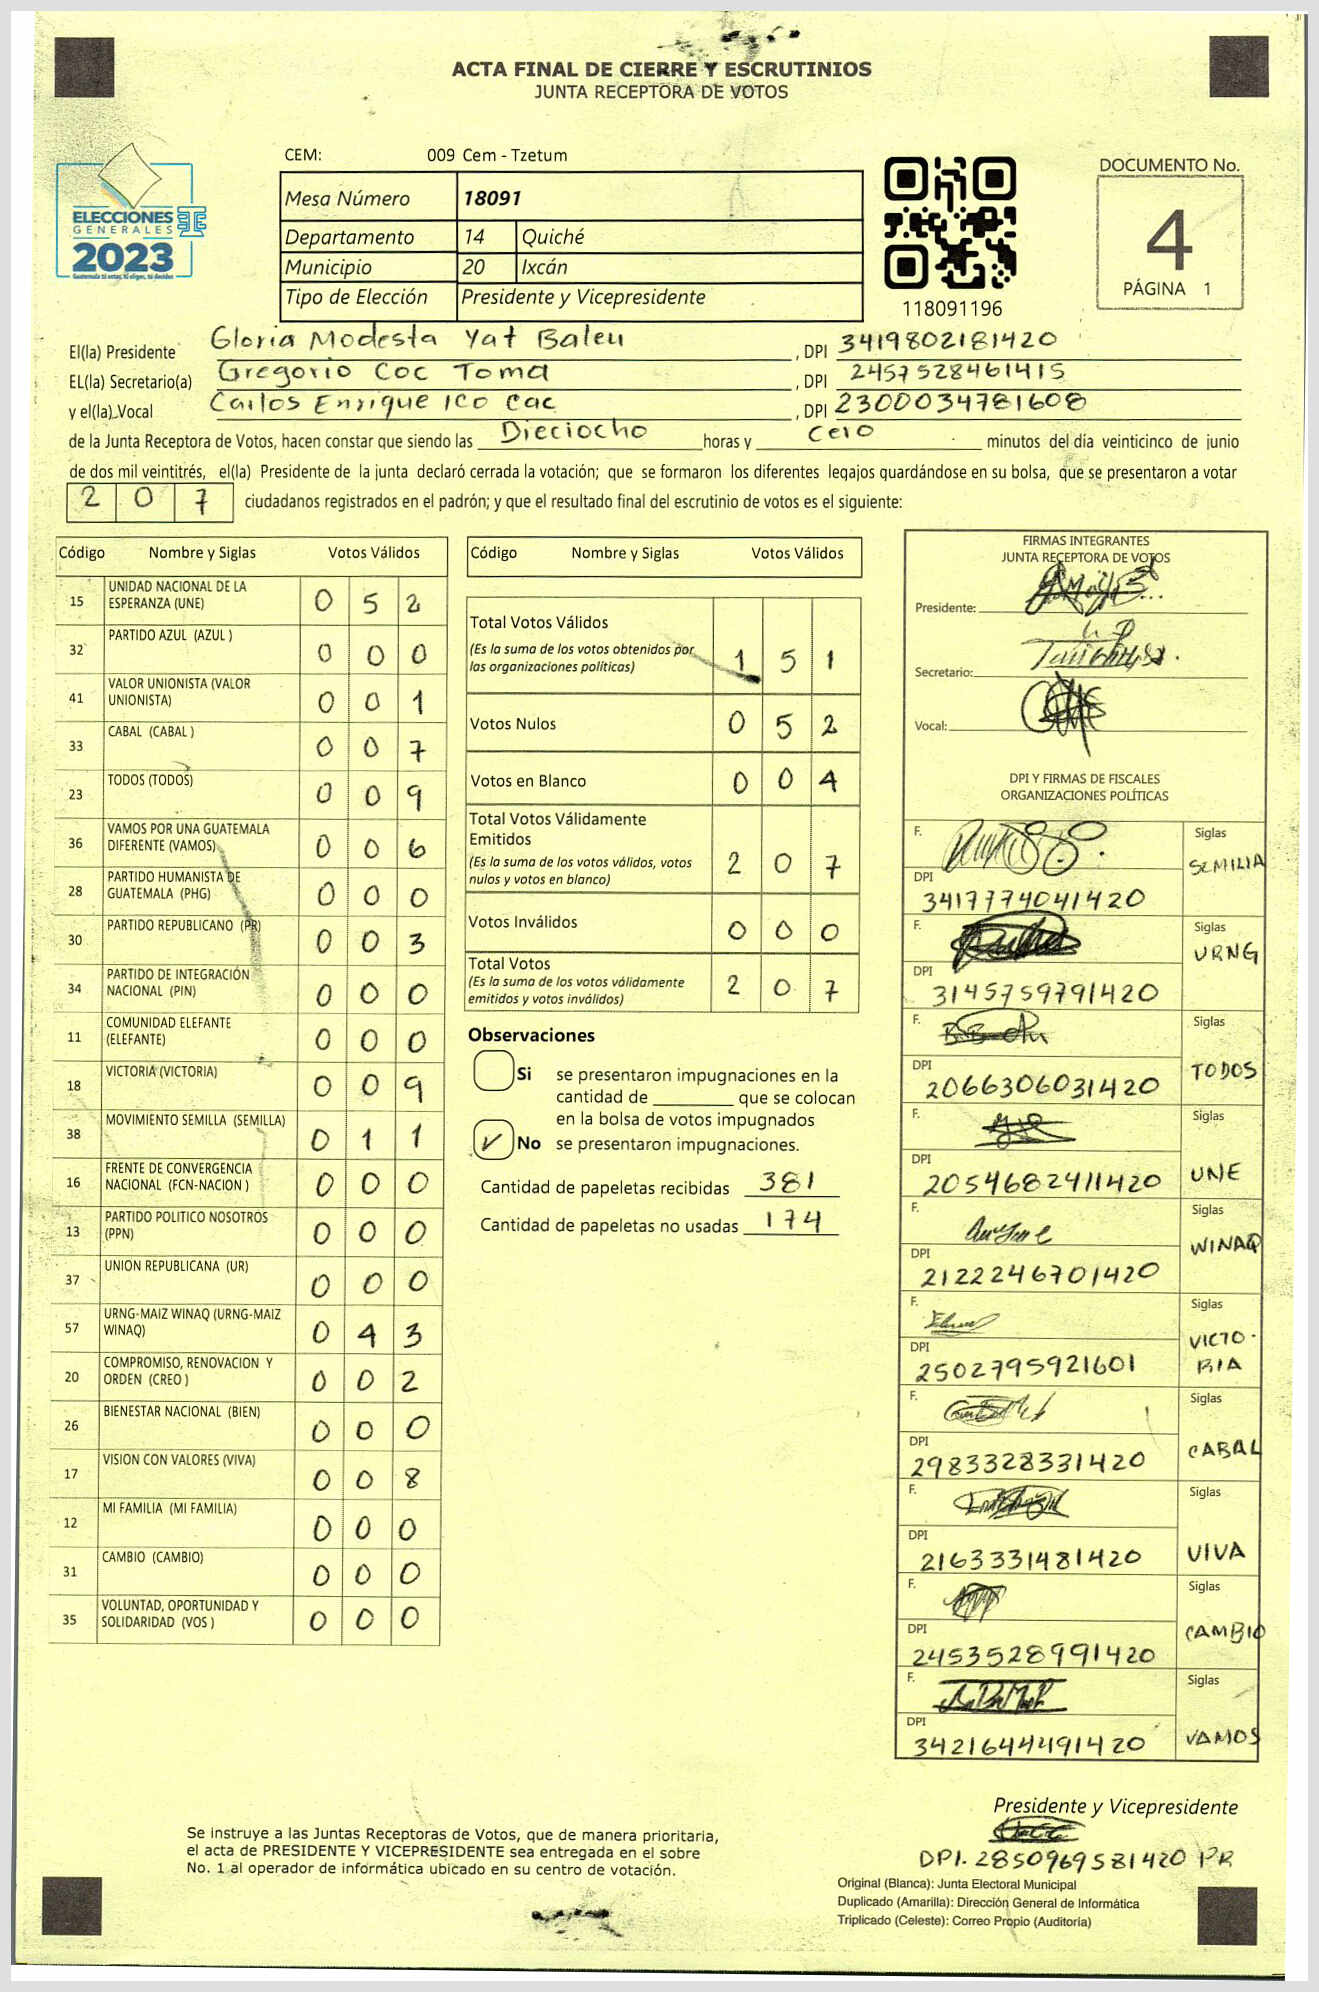 ACTA FINAL DE CIERRE Y ESCRUTINIOS
JUNTA RECEPTORA DE VOTOS
CEM: 009 Cem - Tzetum
Mesa Número 18091
Departamento 14 Quiché
Municipio 20 Ixcán
Tipo de Elección Presidente y Vicepresidente
ELECCIONES
GENERALES
2023
118091196
DOCUMENTO No.
4
PÁGINA 1
El(la) Presidente Gloria Modesta Yat Baleu , DPI 3419802181420
EL(la) Secretario(a) Gregorio Coc Toma , DPI 2457528461415
y el(la) Vocal Carlos Enrique Ico Cac , DPI 2300034781608
de la Junta Receptora de Votos, hacen constar que siendo las Dieciocho horas y Cero minutos del día veinticinco de junio
de dos mil veintitrés, el(la) Presidente de la junta declaró cerrada la votación; que se formaron los diferentes legajos quardándose en su bolsa, que se presentaron a votar
2 0 7 ciudadanos registrados en el padrón; y que el resultado final del escrutinio de votos es el siguiente:
Código Nombre y Siglas Votos Válidos
15 UNIDAD NACIONAL DE LA ESPERANZA (UNE) 0 5 2
32 PARTIDO AZUL (AZUL ) 0 0 0
41 VALOR UNIONISTA (VALOR UNIONISTA) 0 0 1
33 CABAL (CABAL ) 0 0 7
23 TODOS (TODOS) 0 0 9
36 VAMOS POR UNA GUATEMALA DIFERENTE (VAMOS) 0 0 6
28 PARTIDO HUMANISTA DE GUATEMALA (PHG) 0 0 0
30 PARTIDO REPUBLICANO (PR) 0 0 3
34 PARTIDO DE INTEGRACIÓN NACIONAL (PIN) 0 0 0
11 COMUNIDAD ELEFANTE (ELEFANTE) 0 0 0
18 VICTORIA (VICTORIA) 0 0 9
38 MOVIMIENTO SEMILLA (SEMILLA) 0 1 1
16 FRENTE DE CONVERGENCIA NACIONAL (FCN-NACION ) 0 0 0
13 PARTIDO POLITICO NOSOTROS (PPN) 0 0 0
37 UNION REPUBLICANA (UR) 0 0 0
57 URNG-MAIZ WINAQ (URNG-MAIZ WINAQ) 0 4 3
20 COMPROMISO, RENOVACION Y ORDEN (CREO ) 0 0 2
26 BIENESTAR NACIONAL (BIEN) 0 0 0
17 VISION CON VALORES (VIVA) 0 0 8
12 MI FAMILIA (MI FAMILIA) 0 0 0
31 CAMBIO (CAMBIO) 0 0 0
35 VOLUNTAD, OPORTUNIDAD Y SOLIDARIDAD (VOS ) 0 0 0
Código Nombre y Siglas Votos Válidos
Total Votos Válidos
(Es la suma de los votos obtenidos por
las organizaciones políticas) 1 5 1
Votos Nulos 0 5 2
Votos en Blanco 0 0 4
Total Votos Válidamente
Emitidos
(Es la suma de los votos válidos, votos
nulos y votos en blanco) 2 0 7
Votos Inválidos 0 0 0
Total Votos
(Es la suma de los votos válidamente
emitidos y votos inválidos) 2 0 7
Observaciones
Si se presentaron impugnaciones en la
cantidad de ________ que se colocan
en la bolsa de votos impugnados
✓ No se presentaron impugnaciones.
Cantidad de papeletas recibidas 381
Cantidad de papeletas no usadas 174
FIRMAS INTEGRANTES
JUNTA RECEPTORA DE VOTOS
Presidente:
Secretario:
Vocal:
DPI Y FIRMAS DE FISCALES
ORGANIZACIONES POLÍTICAS
F. Siglas SEMILIA
DPI 3417774041420
F. Siglas URNG
DPI 3145759791420
F. Siglas TODOS
DPI 2066306031420
F. Siglas UNE
DPI 2054682411420
F. Siglas WINAQ
DPI 2122246701420
F. Siglas VICTO-
RIA
DPI 2502795921601
F. Siglas CABAL
DPI 2983328331420
F. Siglas VIVA
DPI 2163331481420
F. Siglas CAMBIO
DPI 2453528991420
F. Siglas VAMOS
DPI 3421644491420
Presidente y Vicepresidente
DPI. 2850969581420 PR
Se instruye a las Juntas Receptoras de Votos, que de manera prioritaria,
el acta de PRESIDENTE Y VICEPRESIDENTE sea entregada en el sobre
No. 1 al operador de informática ubicado en su centro de votación.
Original (Blanca): Junta Electoral Municipal
Duplicado (Amarilla): Dirección General de Informática
Triplicado (Celeste): Correo Propio (Auditoría)